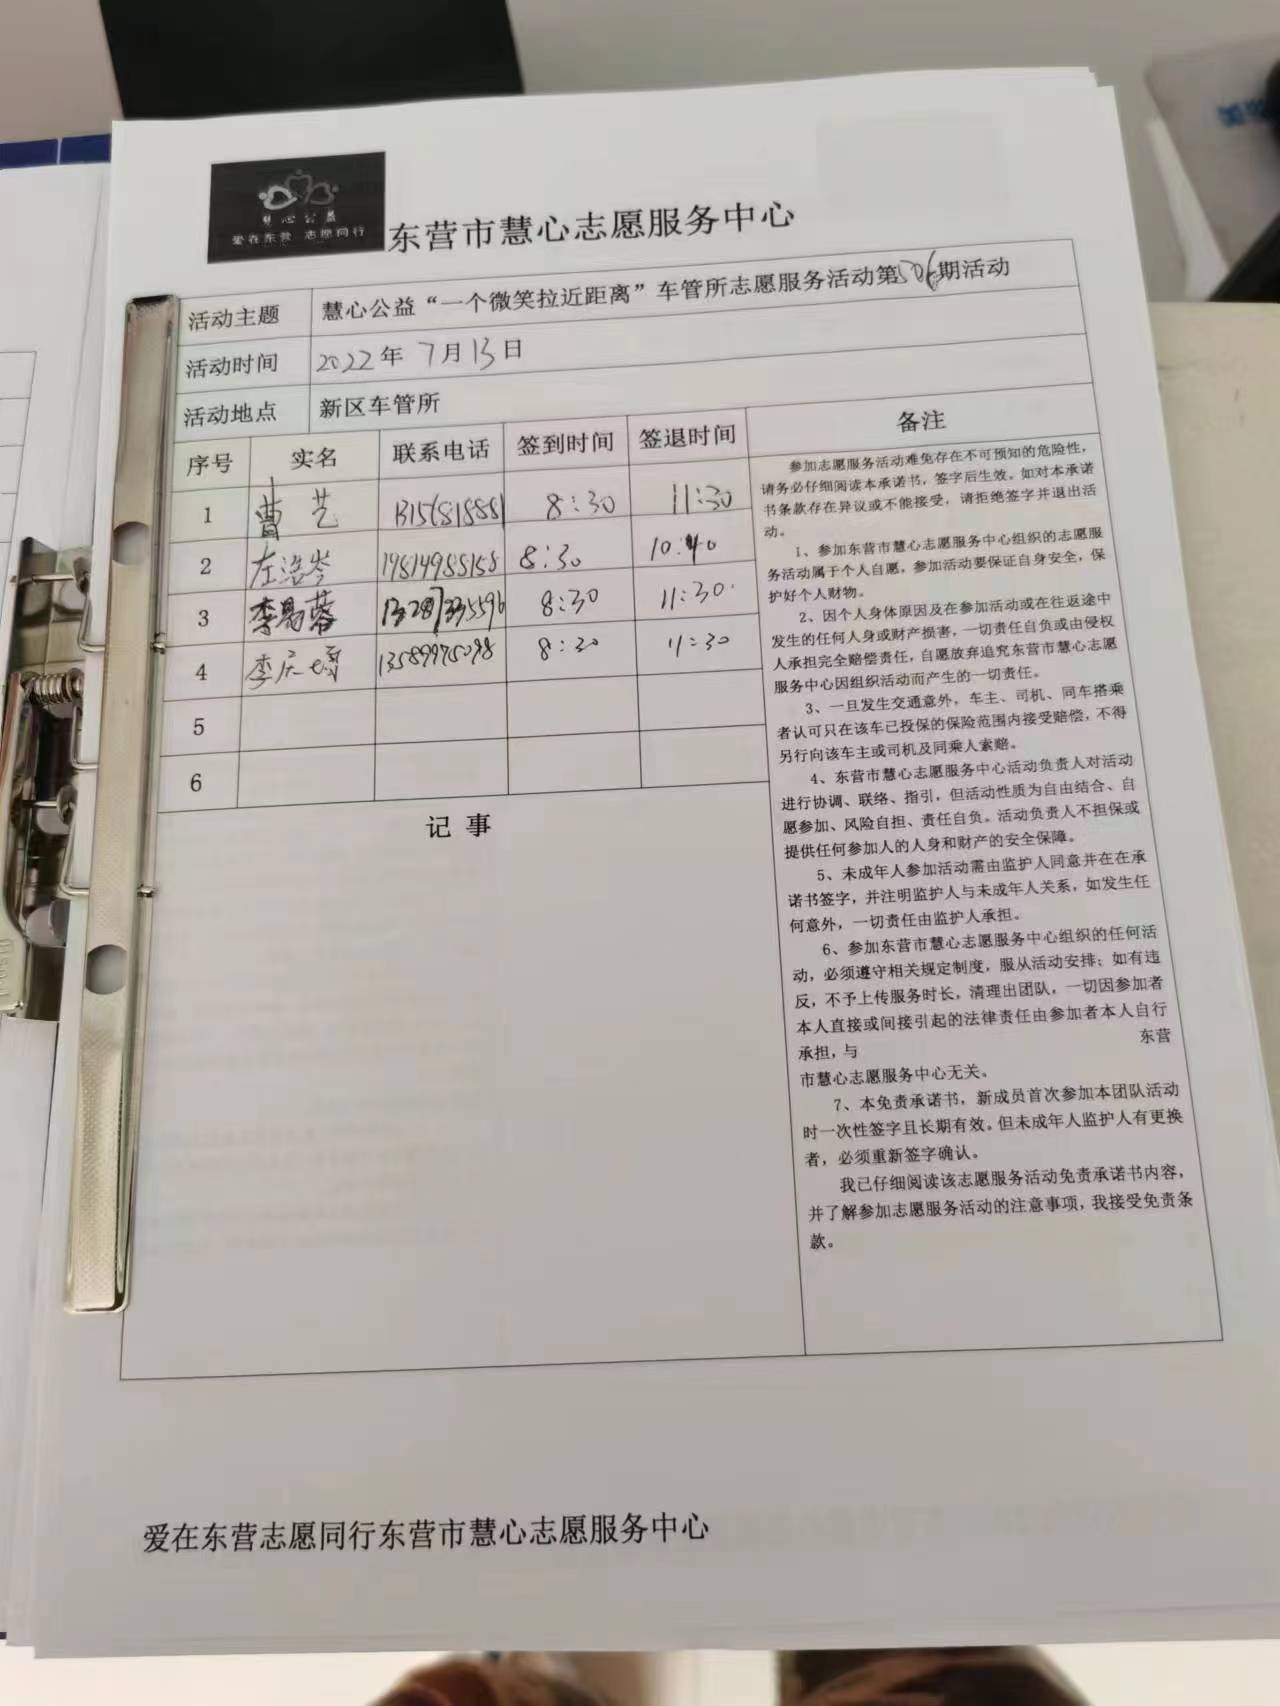 慧心公益
爱在东营 志愿同行
东营市慧心志愿服务中心
活动主题 慧心公益“一个微笑拉近距离”车管所志愿服务活动第506期活动
活动时间 2022年7月13日
活动地点 新区车管所
序号 实名 联系电话 签到时间 签退时间 备注
1 曹艺 8:30 11:30
2 8:30 10:40
3 8:30 11:30
4 8:30 11:30
5
6
记事
参加志愿服务活动难免存在不可预知的危险性，
请务必仔细阅读本承诺书，签字后生效。如对本承诺
书条款存在异议或不能接受，请拒绝签字并退出活
动。
1、参加东营市慧心志愿服务中心组织的志愿服
务活动属于个人自愿，参加活动要保证自身安全，保
护好个人财物。
2、因个人身体原因及在参加活动或在往返途中
发生的任何人身或财产损害，一切责任自负或由侵权
人承担完全赔偿责任，自愿放弃追究东营市慧心志愿
服务中心因组织活动而产生的一切责任。
3、一旦发生交通意外，车主、司机、同车搭乘
者认可只在该车已投保的保险范围内接受赔偿，不得
另行向该车主或司机及同乘人索赔。
4、东营市慧心志愿服务中心活动负责人对活动
进行协调、联络、指引，但活动性质为自由结合、自
愿参加、风险自担、责任自负。活动负责人不担保或
提供任何参加人的人身和财产的安全保障。
5、未成年人参加活动需由监护人同意并在在承
诺书签字，并注明监护人与未成年人关系，如发生任
何意外，一切责任由监护人承担。
6、参加东营市慧心志愿服务中心组织的任何活
动，必须遵守相关规定制度，服从活动安排；如有违
反，不予上传服务时长，清理出团队，一切因参加者
本人直接或间接引起的法律责任由参加者本人自行
承担，与 东营
市慧心志愿服务中心无关。
7、本免责承诺书，新成员首次参加本团队活动
时一次性签字且长期有效。但未成年人监护人有更换
者，必须重新签字确认。
我已仔细阅读该志愿服务活动免责承诺书内容，
并了解参加志愿服务活动的注意事项，我接受免责条
款。
爱在东营志愿同行东营市慧心志愿服务中心